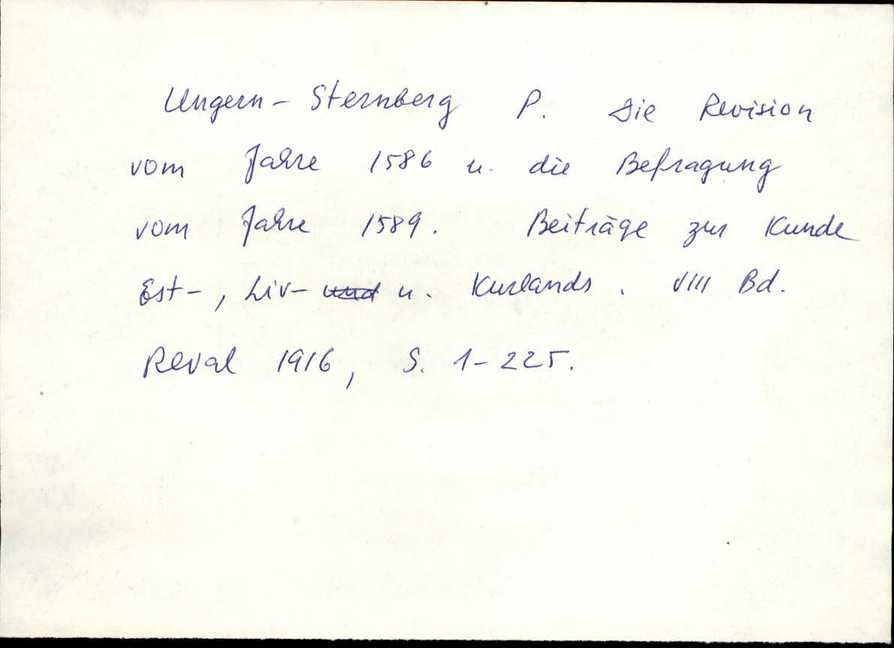 Ungern-Sternberg P. Die Revision
vom Jahre 1586 u. die Befragung
vom Jahre 1589. Beiträge zur Kunde
Est-, Liv- und u. Kurlands. VIII Bd.
Reval 1916, S. 1-225.